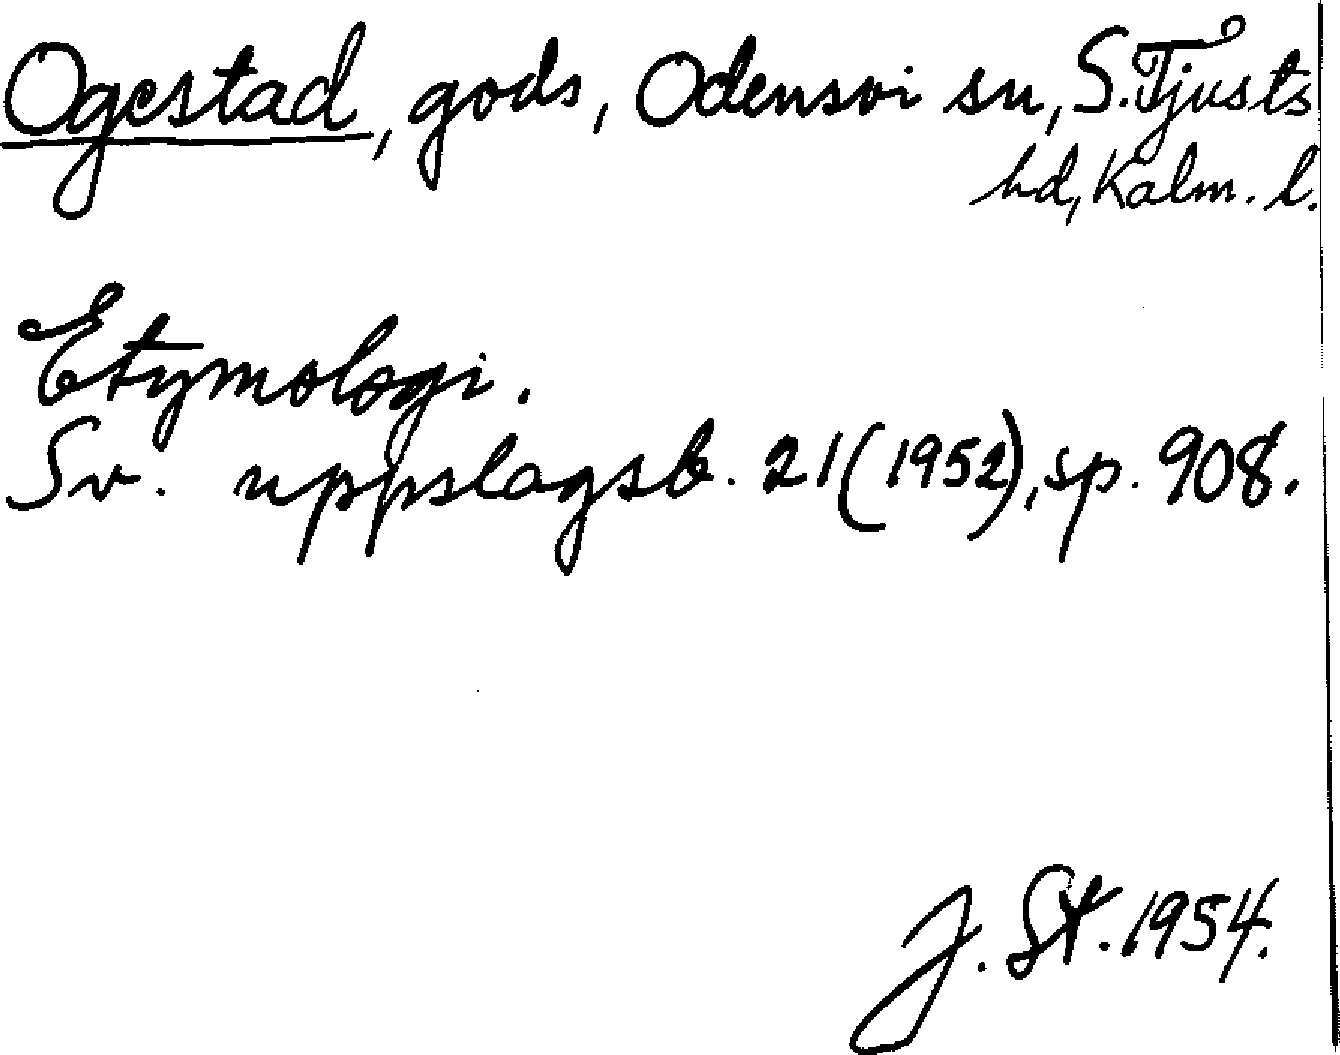 Ogestad, gods, Odensvi sn, S. Tjusts
hd, Kalm. l.
Etymologi.
Sv. uppslagsb. 21 (1952), sp. 908.
J. St. 1954.